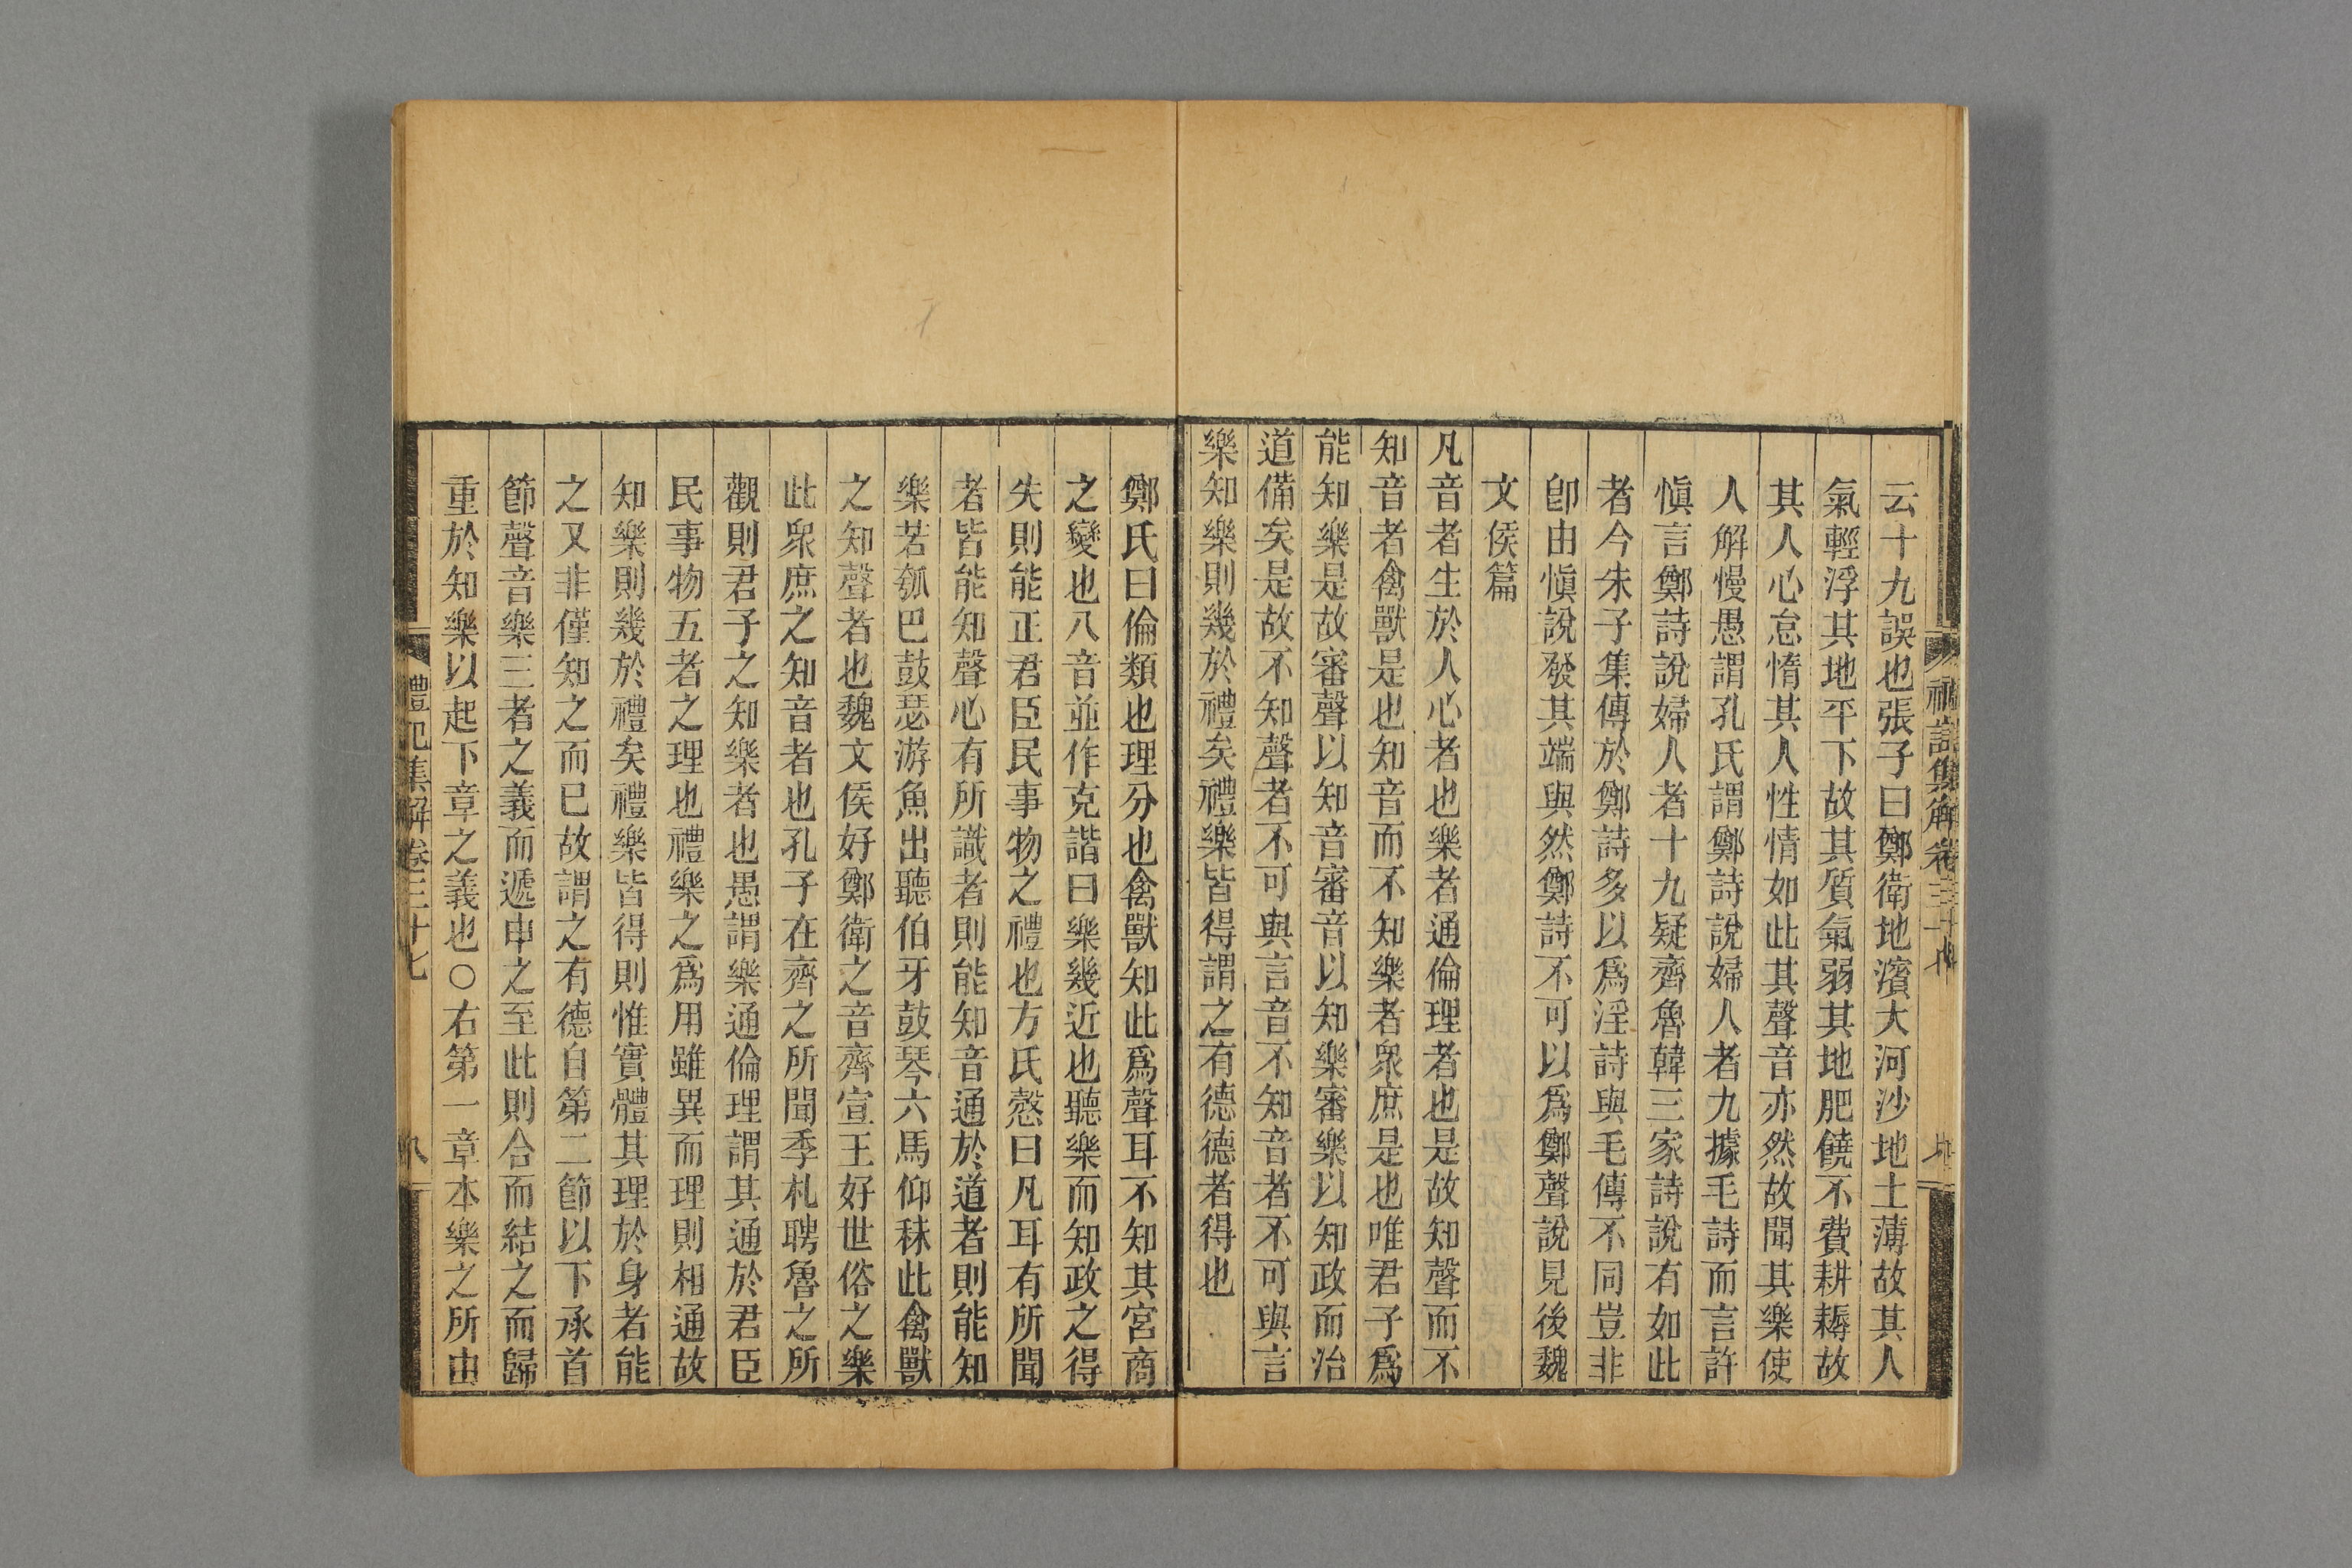 禮記集解卷三十七
云十九誤也張子曰鄭衛地濱大河沙地土薄故其人
氣輕浮其地平下故其質氣弱其地肥饒不費耕耨故
其人心怠惰其人性情如此其聲音亦然故聞其樂使
人解慢愚謂孔氏謂鄭詩說婦人者九據毛詩而言許
愼言鄭詩說婦人者十九疑齊魯韓三家詩說有如此
者今朱子集傳於鄭詩多以爲淫詩與毛傳不同豈非
卽由愼說發其端與然鄭詩不可以爲鄭聲說見後魏
文侯篇
凡音者生於人心者也樂者通倫理者也是故知聲而不
知音者禽獸是也知音而不知樂者衆庶是也唯君子爲
能知樂是故審聲以知音審音以知樂審樂以知政而治
道備矣是故不知聲者不可與言音不知音者不可與言
樂知樂則幾於禮矣禮樂皆得謂之有德德者得也
鄭氏曰倫類也理分也禽獸知此爲聲耳不知其宮商
之變也八音並作克諧曰樂幾近也聽樂而知政之得
失則能正君臣民事物之禮也方氏慤曰凡耳有所聞
者皆能知聲心有所識者則能知音通於道者則能知
樂若瓠巴鼓瑟游魚出聽伯牙鼓琴六馬仰秣此禽獸
之知聲者也魏文侯好鄭衛之音齊宣王好世俗之樂
此衆庶之知音者也孔子在齊之所聞季札聘魯之所
觀則君子之知樂者也愚謂樂通倫理謂其通於君臣
民事物五者之理也禮樂之爲用雖異而理則相通故
知樂則幾於禮矣禮樂皆得則惟實體其理於身者能
之又非僅知之而已故謂之有德自第二節以下承首
節聲音樂三者之義而遞申之至此則合而結之而歸
重於知樂以起下章之義也○右第一章本樂之所由
禮記集解卷三十七
八